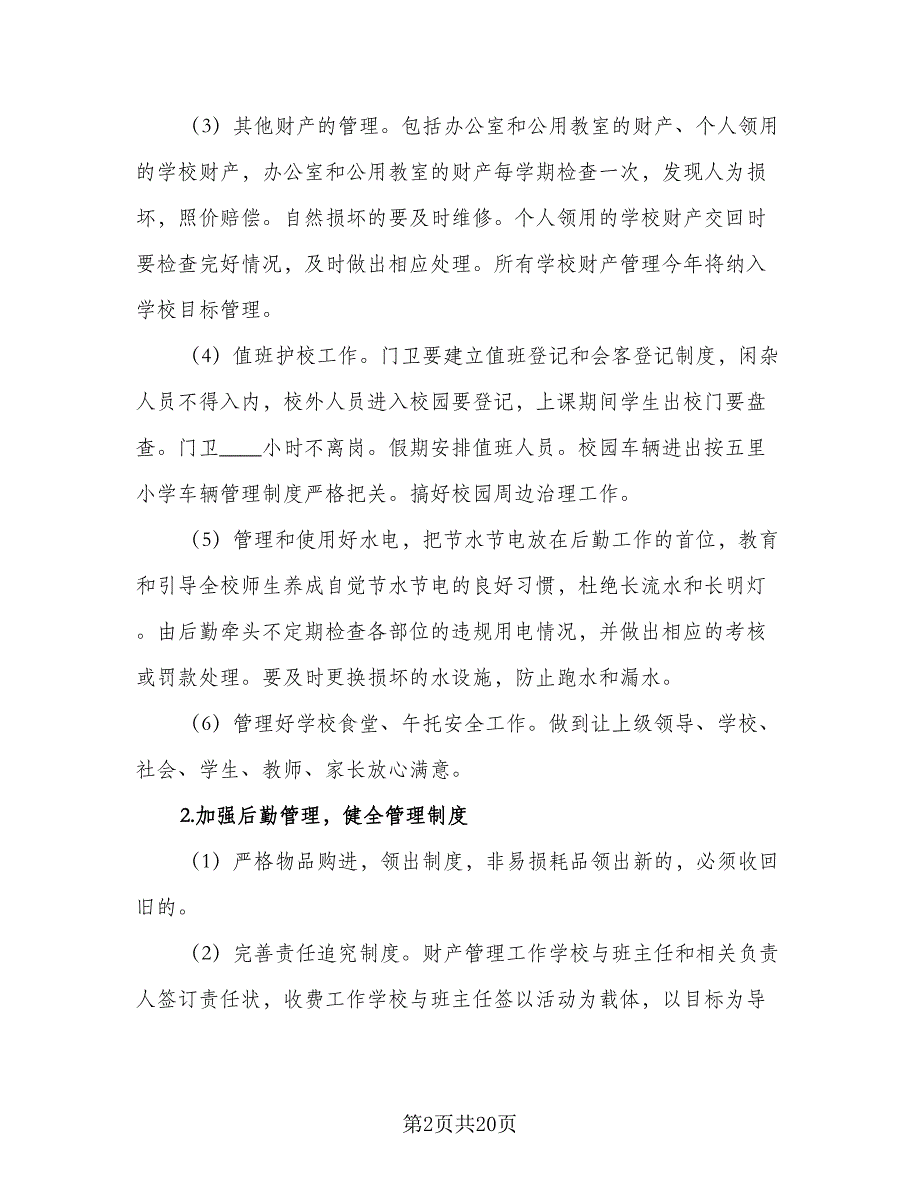 （3）其他财产的管理。包括办公室和公用教室的财产、个人领用
的学校财产，办公室和公用教室的财产每学期检查一次，发现人为损
坏，照价赔偿。自然损坏的要及时维修。个人领用的学校财产交回时
要检查完好情况，及时做出相应处理。所有学校财产管理今年将纳入
学校目标管理。
（4）值班护校工作。门卫要建立值班登记和会客登记制度，闲杂
人员不得入内，校外人员进入校园要登记，上课期间学生出校门要盘
查。门卫____小时不离岗。假期安排值班人员。校园车辆进出按五里
小学车辆管理制度严格把关。搞好校园周边治理工作。
（5）管理和使用好水电，把节水节电放在后勤工作的首位，教育
和引导全校师生养成自觉节水节电的良好习惯，杜绝长流水和长明灯
。由后勤牵头不定期检查各部位的违规用电情况，并做出相应的考核
或罚款处理。要及时更换损坏的水设施，防止跑水和漏水。
（6）管理好学校食堂、午托安全工作。做到让上级领导、学校、
社会、学生、教师、家长放心满意。
2.加强后勤管理，健全管理制度
（1）严格物品购进，领出制度，非易损耗品领出新的，必须收回
旧的。
（2）完善责任追究制度。财产管理工作学校与班主任和相关负责
人签订责任状，收费工作学校与班主任签以活动为载体，以目标为导
第2页共20页